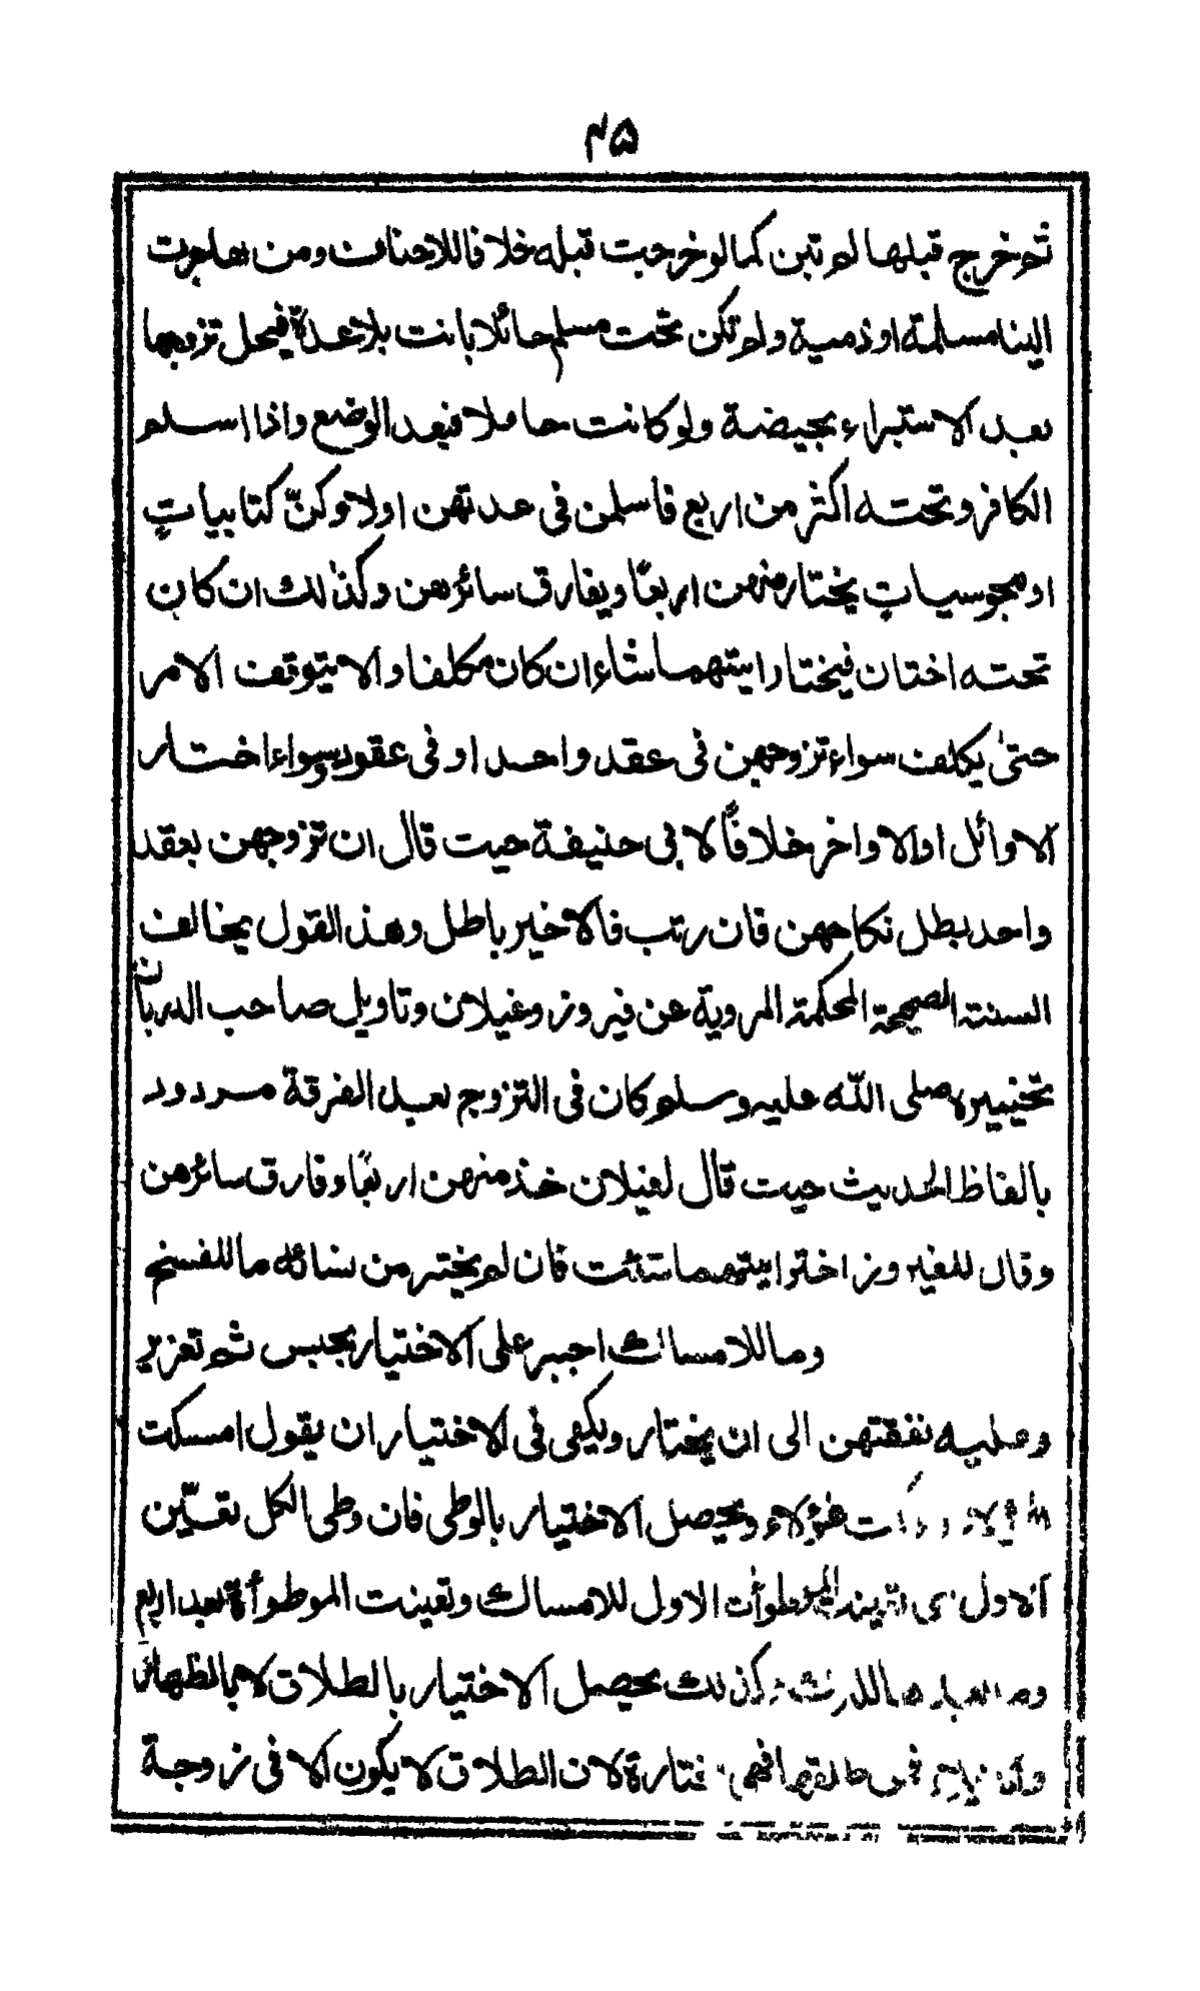 ۴۵
ثم خرج قبلها لم تبن كما لو خرجت قبله خلافا للاحناف ومن هاجرت
الينا مسلمة او ذمية ولم تكن تحت مسلم حائلا بانت بلا عدة فيحل تزوجها
بعد الاستبراء بحيضة ولو كانت حاملا فبعد الوضع واذا اسلم
الكافر وتحته اكثر من اربع فأسلمن في عدتهن اولا وكنّ كتابياتٍ
او مجوسياتٍ يختار منهن اربعًا ويفارق سائرهن وكذٰلك ان كان
تحته اختان فيختار ايتهما شاء ان كان مكلفا والا يتوقف الامر
حتىٰ يكلف سواء تزوجهن في عقد واحد او في عقود وسواء اختار
الاوائل او الاواخر خلافًا لابي حنيفة حيث قال ان تزوجهن بعقد
واحد بطل نكاحهن فان رتب فالاخير باطل وهذ القول يخالف
السنته الصحيحة المحكمة المروية عن فيروز وغيلان وتاويل صاحب الدر بان
تخييره صلى الله عليه وسلم كان في التزوج بعد الفرقة مردود
بالفاظ الحديث حيث قال لغيلان خذ منهن اربعًا وفارق سائرهن
وقال للفيروز اختر ايتهما شئت فان لم يختر من نسائه ما للفسخ
وما للامساك اجبر على الاختيار بحبس ثم تعزير
وعليه نفقتهن الى ان يختار ويكفي في الاختيار ان يقول امسكت
هؤلاء ويحصل الاختيار بالوطي فان وطي الكل تعيّن
الاول الموطوأت الاول للامساك وتعينت الموطوأة بعد اربع
للترك وكذلك يحصل الاختيار بالطلاق لا بالظهار
طلقها فهي مختارة لان الطلاق لا يكون الا في زوجة